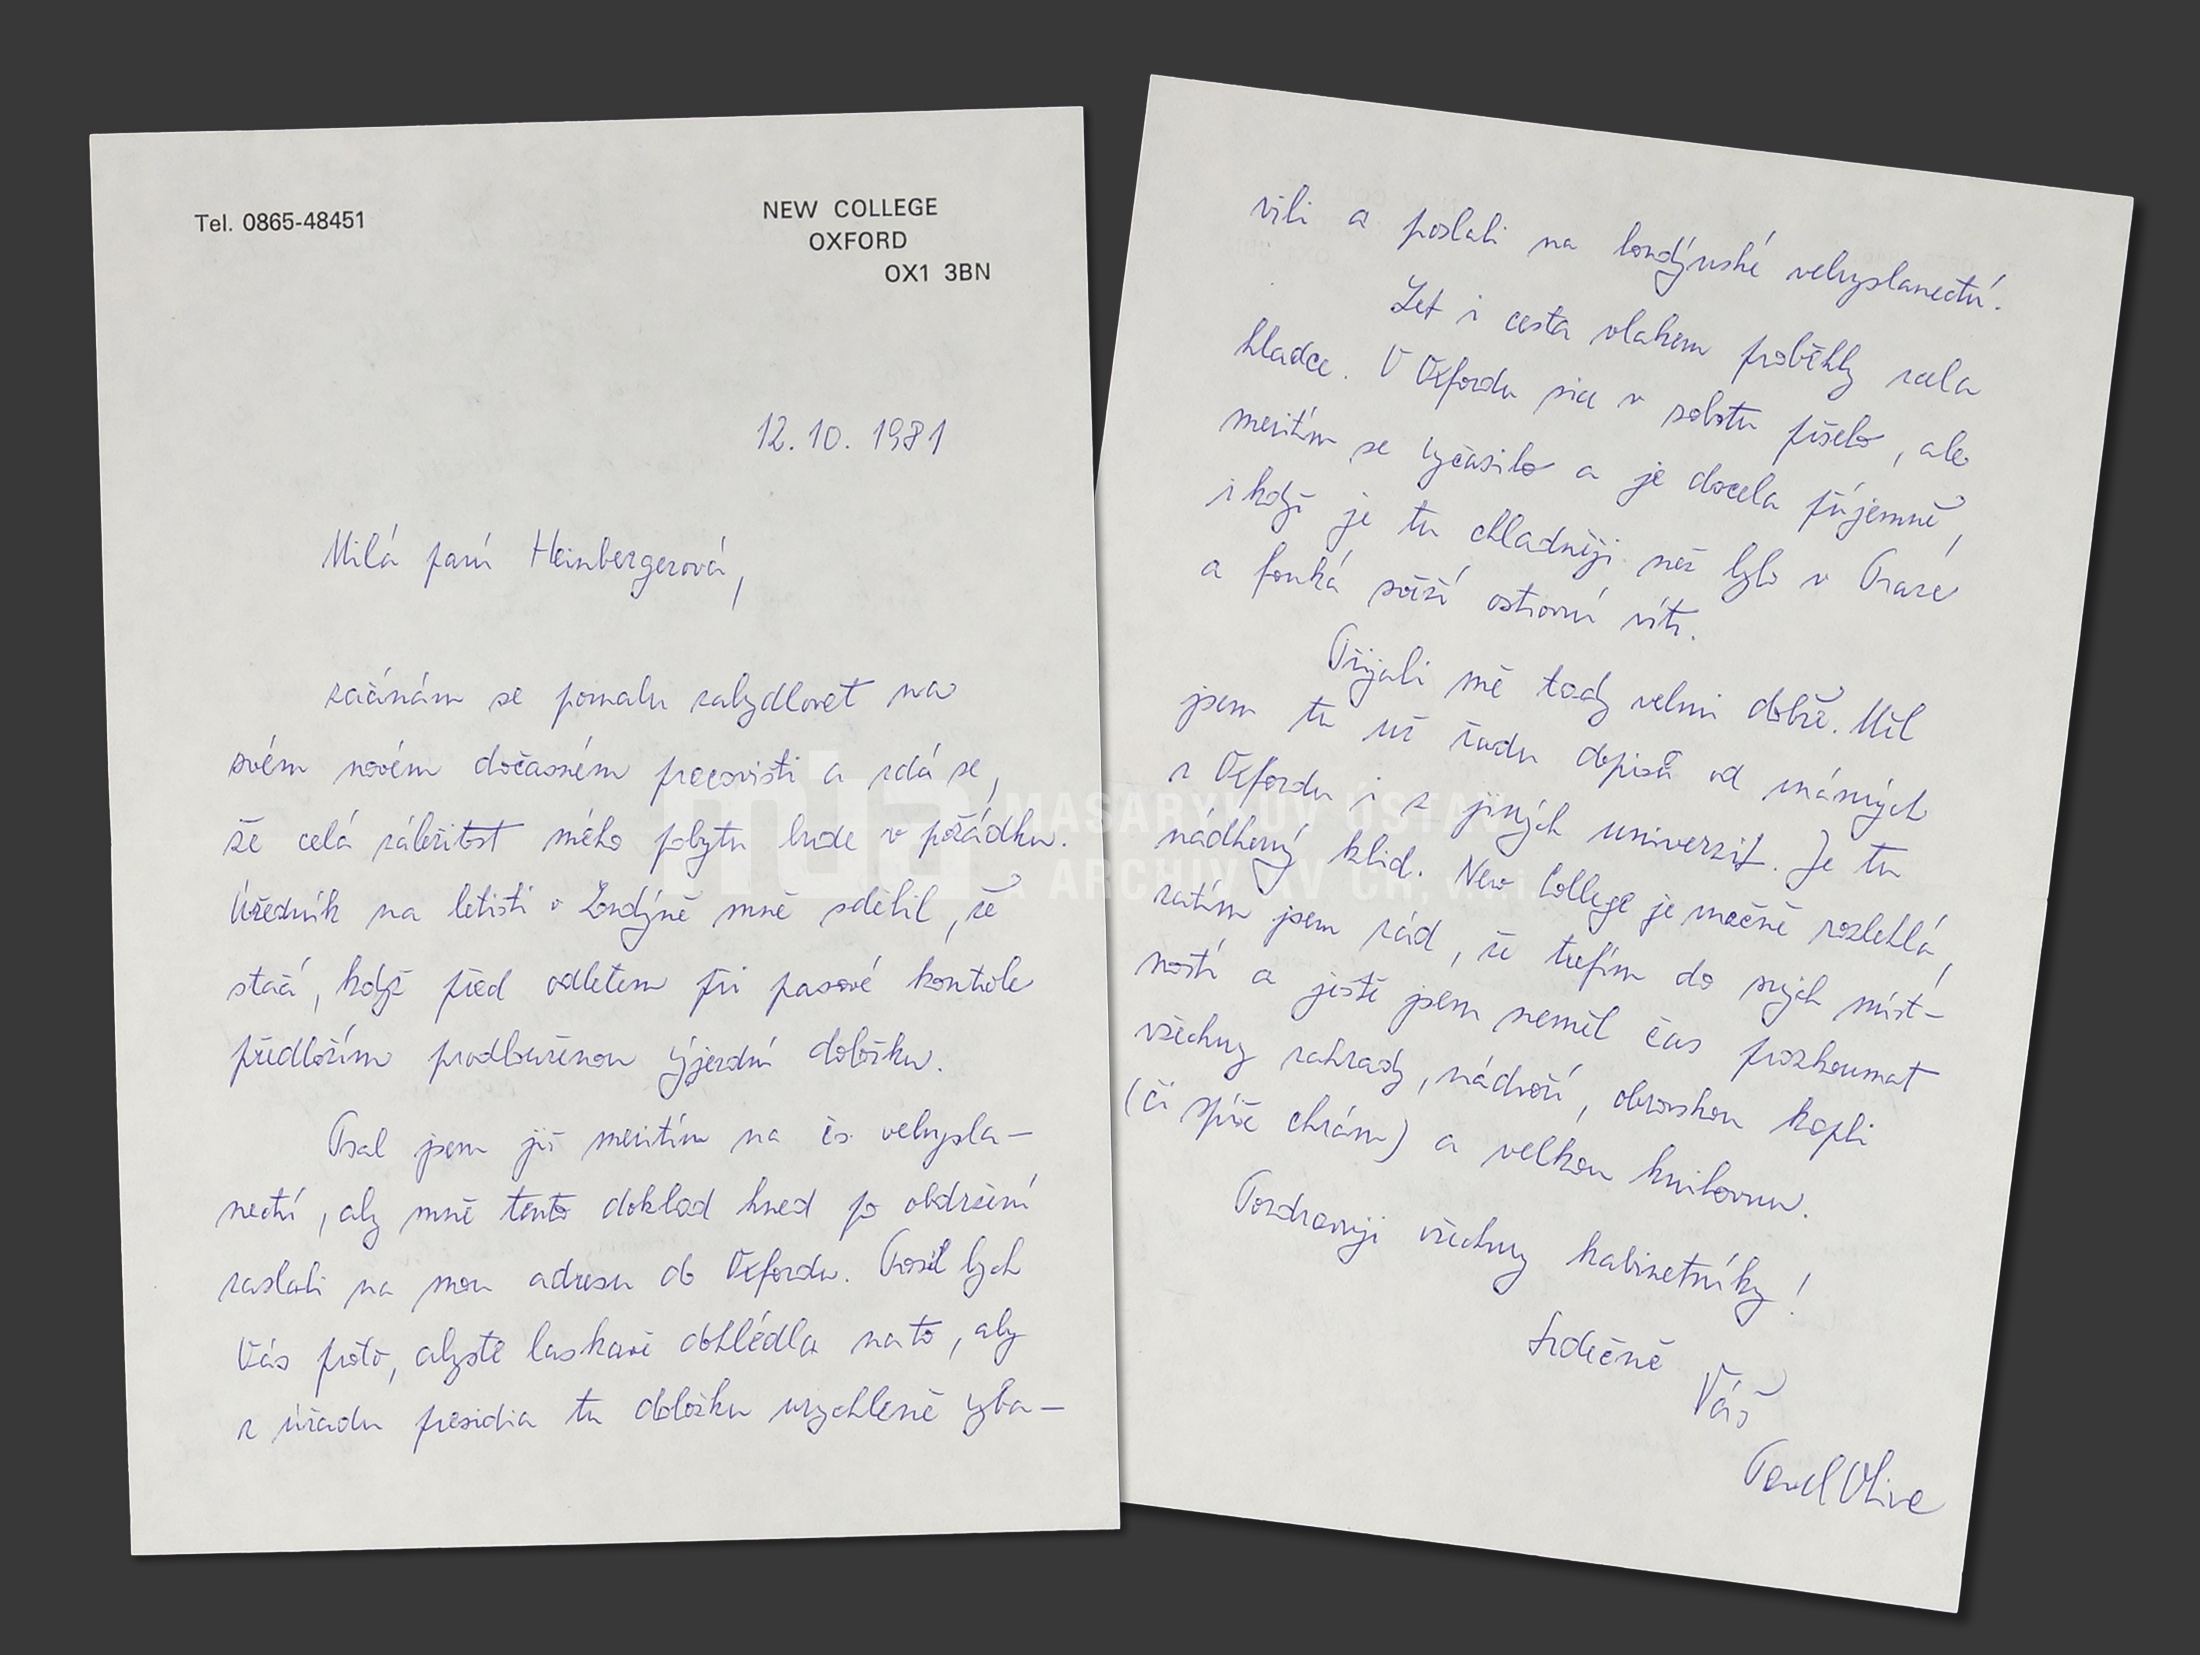 Tel. 0865-48451
NEW COLLEGE
OXFORD
OX1 3BN
12.10. 1981
Milá paní Heinbergerová,
začínám se pomalu zabydlovat na
svém novém dočasném pracovišti a zdá se,
že celá záležitost mého pobytu bude v pořádku.
Úředník na letišti v Londýně mně sdělil, že
stačí, když před odletem při pasové kontrole
předložím prodlouženou výjezdní doložku.
Psal jsem již mezitím na čs. velvysla-
nectví, aby mně tento doklad hned po obdržení
zaslali na mou adresu do Oxfordu. Prosil bych
Vás proto, abyste laskavě dohlédla na to, aby
z úřadu presidia tu doložku urychleně vyba-
vili a poslali na londýnské velvyslanectví.
Let i cesta vlakem proběhly zcela
hladce. V Oxfordu sice v sobotu pršelo, ale
mezitím se vyčasilo a je docela příjemně,
i když je tu chladněji než bylo v Praze
a fouká svěží ostrovní vítr.
Přijali mě tady velmi dobře. Měl
jsem tu už řadu dopisů od známých
z Oxfordu i z jiných univerzit. Je tu
nádherný klid. New College je značně rozlehlá,
zatím jsem rád, že trefím do svých míst-
ností a ještě jsem neměl čas prozkoumat
všechny zahrady, nádvoří, obrovskou kapli
(či spíše chrám) a velkou knihovnu.
Pozdravuji všechny kabinetníky!
Srdečně
Váš
Pavel Oliva
MASARYKŮV ÚSTAV
A ARCHIV AV ČR, v. v. i.